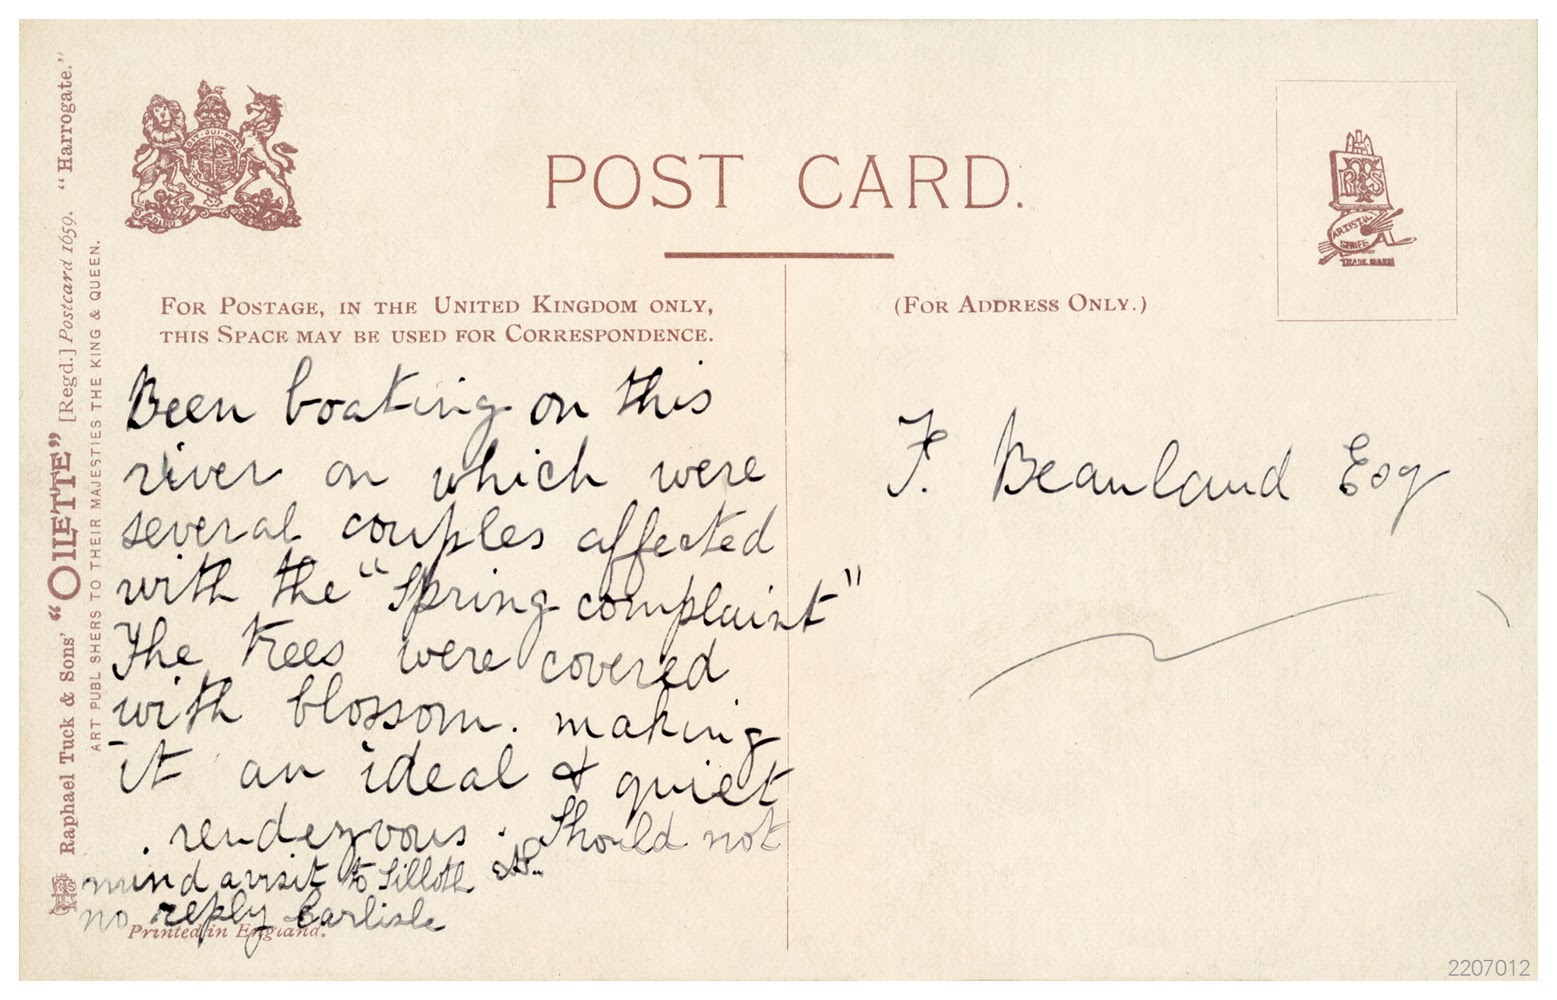 POST CARD.
FOR POSTAGE, IN THE UNITED KINGDOM ONLY,
THIS SPACE MAY BE USED FOR CORRESPONDENCE.
(FOR ADDRESS ONLY.)
Been boating on this
river on which were
several couples affected
with the "Spring complaint"
The trees were covered
with blossom. making
it an ideal & quiet
rendezvous. Should not
mind a visit to Silloth
no reply Carlisle
Printed in England.
F. Beanland Esq
Raphael Tuck & Sons' "OILETTE" [Regd.] Postcard 1659. "Harrogate."
ART PUBL SHERS TO THEIR MAJESTIES THE KING & QUEEN.
DIT·QUI·MAL
RTS
ARTISTIC
SERIES
TRADE MARK
2207012